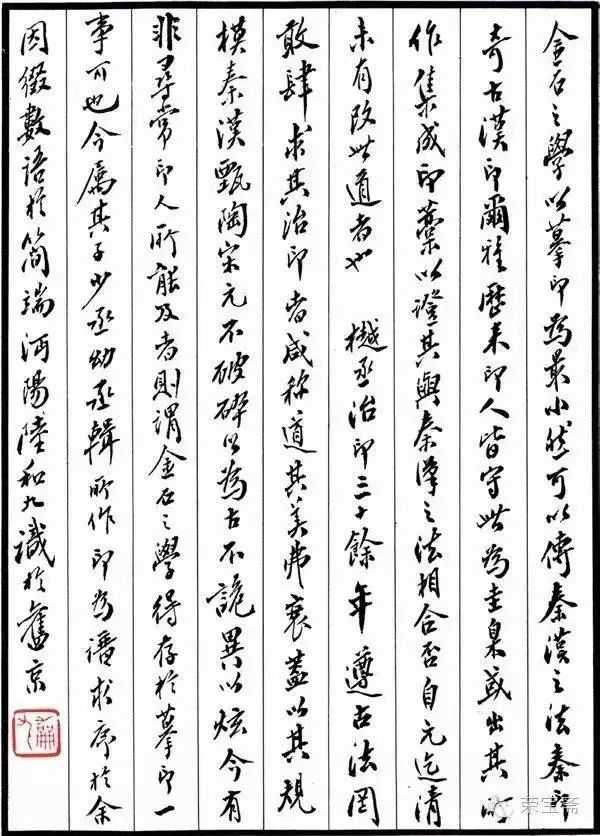 金石之學以摹印為最小然可以傳秦漢之法秦印
奇古漢印爾雅歷來印人皆守此為圭臬或出其所
作集成印藁以證其與秦漢之法相合否自元迄清
未有改此道者也 樾丞治印三十餘年遵古法罔
敢肆求其治印者咸稱道其美弗衰蓋以其規
模秦漢甄陶宋元不破碎以為古不詭異以炫今有
非尋常印人所能及者則謂金石之學得存於摹印一
事可也今屬其子少丞幼丞輯所作印為譜求序於余
因徵數語於簡端沔陽陸和九識於舊京
荣宝斋